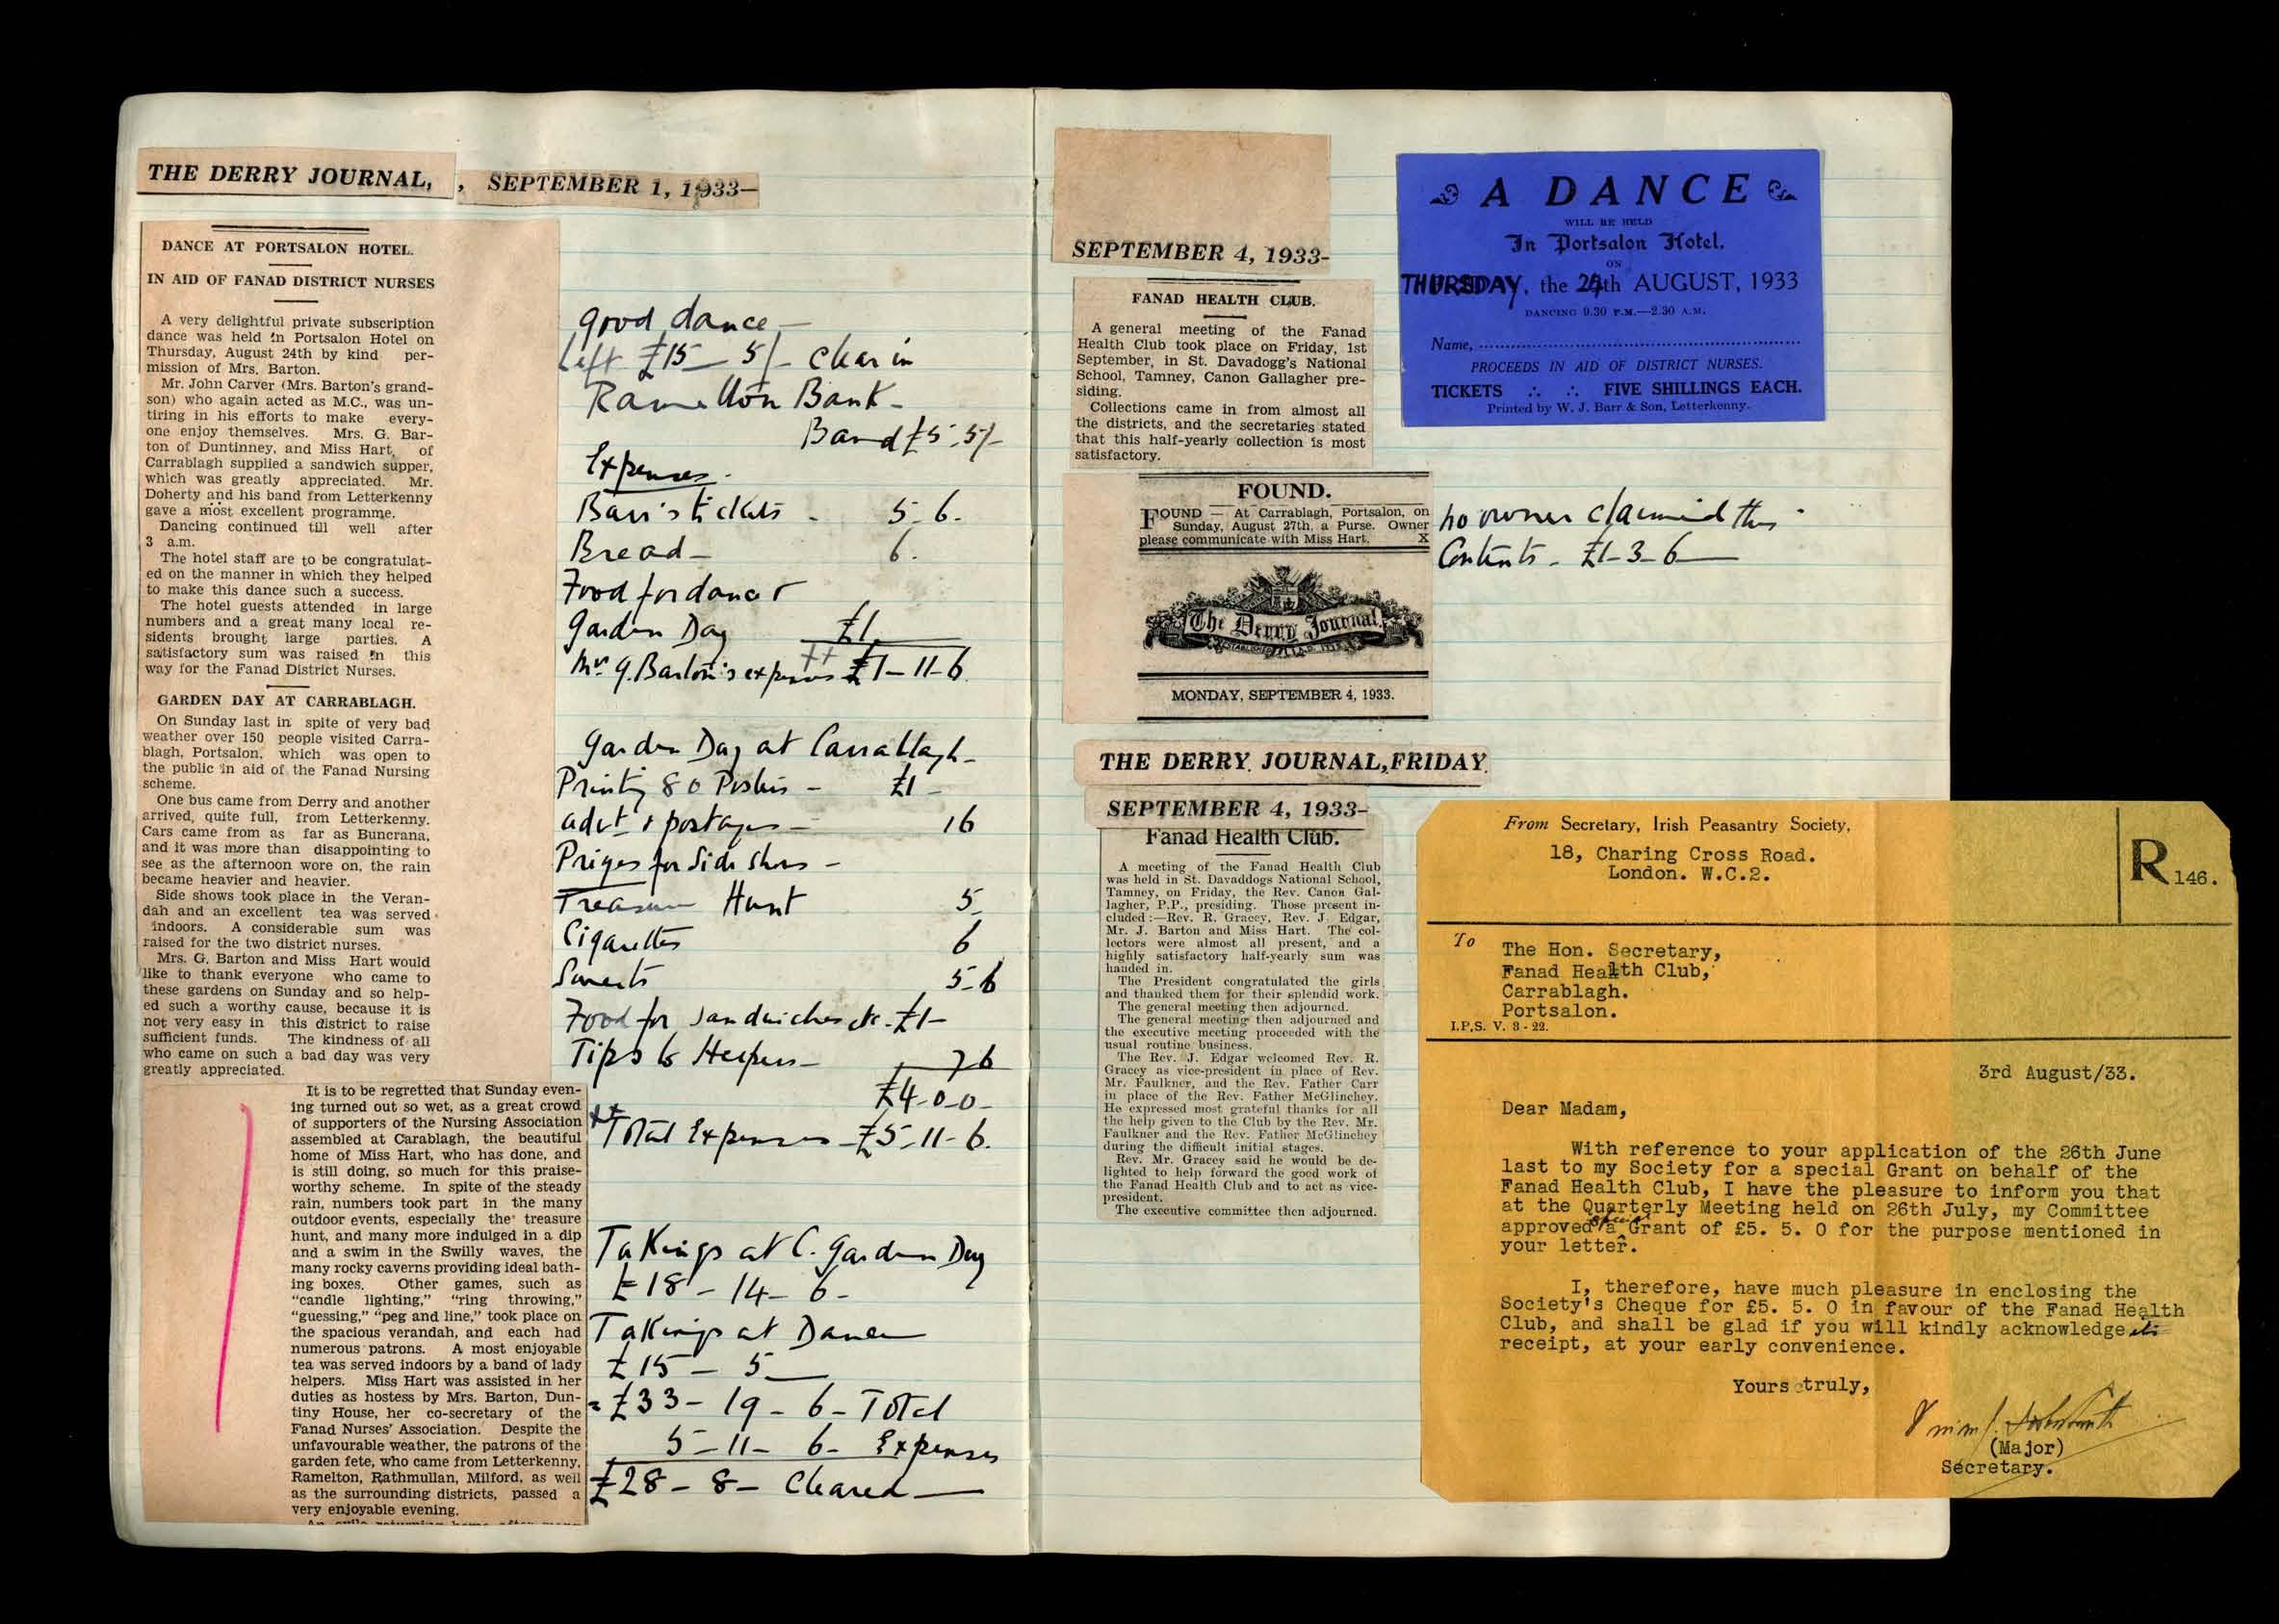 THE DERRY JOURNAL, , SEPTEMBER 1, 1933—
DANCE AT PORTSALON HOTEL.
IN AID OF FANAD DISTRICT NURSES
A very delightful private subscription
dance was held in Portsalon Hotel on
Thursday, August 24th by kind per-
mission of Mrs. Barton.
Mr. John Carver (Mrs. Barton's grand-
son) who again acted as M.C., was un-
tiring in his efforts to make every-
one enjoy themselves. Mrs. G. Bar-
ton of Duntinney, and Miss Hart, of
Carrablagh supplied a sandwich supper,
which was greatly appreciated. Mr.
Doherty and his band from Letterkenny
gave a most excellent programme.
Dancing continued till well after
3 a.m.
The hotel staff are to be congratulat-
ed on the manner in which they helped
to make this dance such a success.
The hotel guests attended in large
numbers and a great many local re-
sidents brought large parties. A
satisfactory sum was raised in this
way for the Fanad District Nurses.
GARDEN DAY AT CARRABLAGH.
On Sunday last in spite of very bad
weather over 150 people visited Carra-
blagh, Portsalon, which was open to
the public in aid of the Fanad Nursing
scheme.
One bus came from Derry and another
arrived, quite full, from Letterkenny.
Cars came from as far as Buncrana,
and it was more than disappointing to
see as the afternoon wore on, the rain
became heavier and heavier.
Side shows took place in the Veran-
dah and an excellent tea was served
indoors. A considerable sum was
raised for the two district nurses.
Mrs. G. Barton and Miss Hart would
like to thank everyone who came to
these gardens on Sunday and so help-
ed such a worthy cause, because it is
not very easy in this district to raise
sufficient funds. The kindness of all
who came on such a bad day was very
greatly appreciated.
It is to be regretted that Sunday even-
ing turned out so wet, as a great crowd
of supporters of the Nursing Association
assembled at Carablagh, the beautiful
home of Miss Hart, who has done, and
is still doing, so much for this praise-
worthy scheme. In spite of the steady
rain, numbers took part in the many
outdoor events, especially the treasure
hunt, and many more indulged in a dip
and a swim in the Swilly waves, the
many rocky caverns providing ideal bath-
ing boxes. Other games, such as
"candle lighting," "ring throwing,"
"guessing," "peg and line," took place on
the spacious verandah, and each had
numerous patrons. A most enjoyable
tea was served indoors by a band of lady
helpers. Miss Hart was assisted in her
duties as hostess by Mrs. Barton, Dun-
tiny House, her co-secretary of the
Fanad Nurses' Association. Despite the
unfavourable weather, the patrons of the
garden fete, who came from Letterkenny,
Ramelton, Rathmullan, Milford, as well
as the surrounding districts, passed a
very enjoyable evening.
good dance —
Left £15 — 5/- clear in
Ramelton Bank —
Band £5 - 5/-
Expenses.
Barr's tickets - 5-6.
Bread — 6.
Food for dance &
Garden Day £1
++
Mrs G. Barton's expenses £1-11-6
Garden Day at Carrablagh —
Printing 80 Posters — £1 -
advt & postages — 16
Prizes for Side Shows —
Treasure Hunt 5-
Cigarettes 6
Sweets 5-6
Food for Sandwiches etc. £1-
Tips to Helpers — 7 6
£4-0-0-
++
Total Expenses — £5-11-6.
Takings at C. Garden Day
£18-14-6-
Takings at Dance
£15-5—
= £33-19-6- Total
5-11-6- Expenses
£28-8- Cleared —
SEPTEMBER 4, 1933-
FANAD HEALTH CLUB.
A general meeting of the Fanad
Health Club took place on Friday, 1st
September, in St. Davadogg's National
School, Tamney, Canon Gallagher pre-
siding.
Collections came in from almost all
the districts, and the secretaries stated
that this half-yearly collection is most
satisfactory.
FOUND.
FOUND — At Carrablagh, Portsalon, on
Sunday, August 27th, a Purse. Owner
please communicate with Miss Hart. X
no owner claimed this -
Contents - £1-3-6 —
The Derry Journal.
MONDAY, SEPTEMBER 4, 1933.
THE DERRY JOURNAL, FRIDAY
SEPTEMBER 4, 1933-
Fanad Health Club.
A meeting of the Fanad Health Club
was held in St. Davaddogs National School,
Tamney, on Friday, the Rev. Canon Gal-
lagher, P.P., presiding. Those present in-
cluded :—Rev. R. Gracey, Rev. J. Edgar,
Mr. J. Barton and Miss Hart. The col-
lectors were almost all present, and a
highly satisfactory half-yearly sum was
handed in.
The President congratulated the girls
and thanked them for their splendid work.
The general meeting then adjourned.
The general meeting then adjourned and
the executive meeting proceeded with the
usual routine business.
The Rev. J. Edgar welcomed Rev. R.
Gracey as vice-president in place of Rev.
Mr. Faulkner, and the Rev. Father Carr
in place of the Rev. Father McGlinchey.
He expressed most grateful thanks for all
the help given to the Club by the Rev. Mr.
Faulkner and the Rev. Father McGlinchey
during the difficult initial stages.
Rev. Mr. Gracey said he would be de-
lighted to help forward the good work of
the Fanad Health Club and to act as vice-
president.
The executive committee then adjourned.
A DANCE
WILL BE HELD
In Portsalon Hotel,
ON
THURSDAY, the 24th AUGUST, 1933
DANCING 9.30 P.M.—2.30 A.M.
Name,
PROCEEDS IN AID OF DISTRICT NURSES.
TICKETS ∴ ∴ FIVE SHILLINGS EACH.
Printed by W. J. Barr & Son, Letterkenny.
From Secretary, Irish Peasantry Society,
18, Charing Cross Road.
London. W.C.2.
R 146.
To The Hon. Secretary,
Fanad Health Club,
Carrablagh.
Portsalon.
I.P.S. V. 3-22.
3rd August/33.
Dear Madam,
With reference to your application of the 26th June
last to my Society for a special Grant on behalf of the
Fanad Health Club, I have the pleasure to inform you that
at the Quarterly Meeting held on 26th July, my Committee
approved a special Grant of £5. 5. 0 for the purpose mentioned in
your letter.
I, therefore, have much pleasure in enclosing the
Society's Cheque for £5. 5. 0 in favour of the Fanad Health
Club, and shall be glad if you will kindly acknowledge its
receipt, at your early convenience.
Yours truly,
(Major)
Secretary.